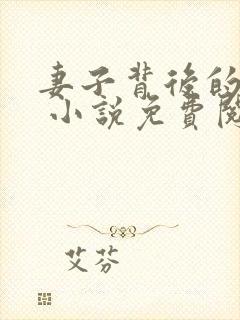 妻子背後的
小說免費閱
艾芬